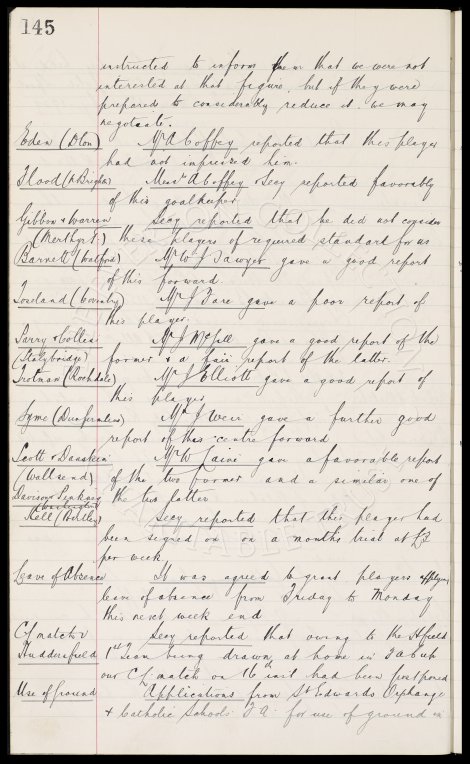 145
instructed to inform them that we were not
interested at that figure, but if they were
prepared to considerably reduce it we may
negotiate.
Eden (Dton) Mr A Coffey reported that this player
had not impressed him.
Flood (N Brighton) Messrs A Coffey & Secy reported favorably
of this goalkeeper.
Gibbon & Warren Secy reported that he did not consider
(Merthyr T.) these players of required standard for us
Barnett (Watford) Mr W J Sawyer gave a good report
of this forward.
Toseland (Coventry) Mr J Fare gave a poor report of
this player.
Sarry & Collen Mr J McGill gave a good report of the
(Stalybridge) former & a fair report of the latter.
Trotman (Rochdale) Mr J Elliott gave a good report of
this player.
Syme (Dunfermline) Mr J Weir gave a further good
report of this centre forward
Scott & Danskin Mr K gave a favorable report
(Wallsend) of the two former and a similar one of
Davison & the two latter
Kell (Birtley) Secy reported that this player had
been signed on on a months trial at £3
per week
Leave of Absence It was agreed to grant players applying
leave of absence from Friday to Monday
this next week end
CL match v Secy reported that owing to the Hfield
Huddersfield 1st Team being drawn at home in FA Cup
our CL match on 16th inst had been postponed
Use of Ground Applications from St Edwards Orphanage
& Catholic Schools F.A. for use of ground on